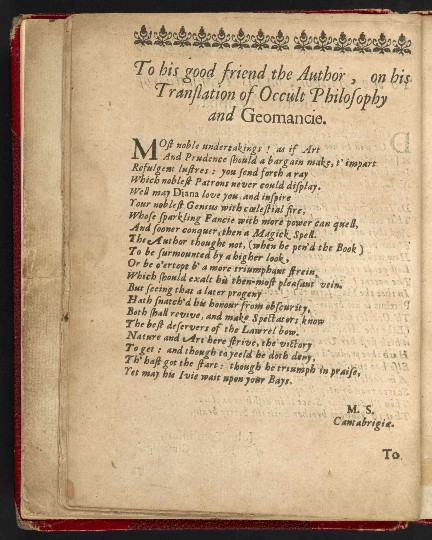 To his good friend the Author, on his
Tranſlation of Occult Philoſophy
and Geomancie.
MOſt noble undertakings! as if Art
And Prudence ſhould a bargain make, t' impart
Refulgent luſtres: you ſend forth a ray
Which nobleſt Patrons never could diſplay.
Well may Diana love you, and inſpire
Your nobleſt Genius with cœleſtial fire,
Whoſe ſparkling Fancie with more power can quell,
And ſooner conquer, then a Magick Spell.
The Author thought not, (when he pen'd the Book)
To be ſurmounted by a higher look,
Or be o'ertopt b' a more triumphant ſtrein,
Which ſhould exalt his then-moſt pleaſant vein.
But ſeeing that a later progeny
Hath ſnatch'd his honour from obſcurity,
Both ſhall revive, and make Spectators know
The beſt deſervers of the Lawrel bow.
Nature and Art here ſtrive, the victory
To get: and though to yeeld he doth deny,
Th' haſt got the ſtart: though he triumph in praiſe,
Yet may his Ivie wait upon your Bays.
M. S.
Cantabrigiæ.
To